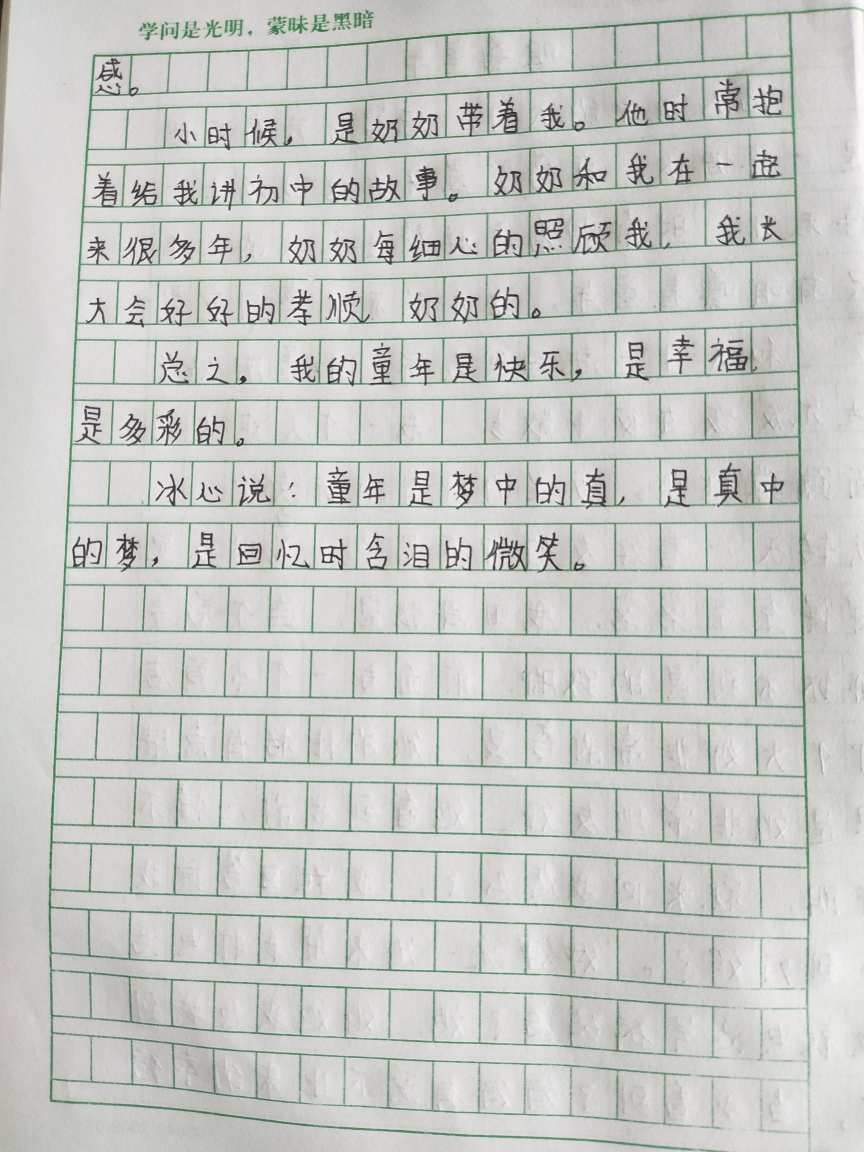 学问是光明，蒙昧是黑暗
感。
小时候，是奶奶带着我。他时常抱
着给我讲初中的故事。奶奶和我在一起
来很多年，奶奶每细心的照顾我，我长
大会好好的孝顺 奶奶的。
总之，我的童年是快乐，是幸福，
是多彩的。
冰心说：童年是梦中的真，是真中
的梦，是回忆时含泪的微笑。